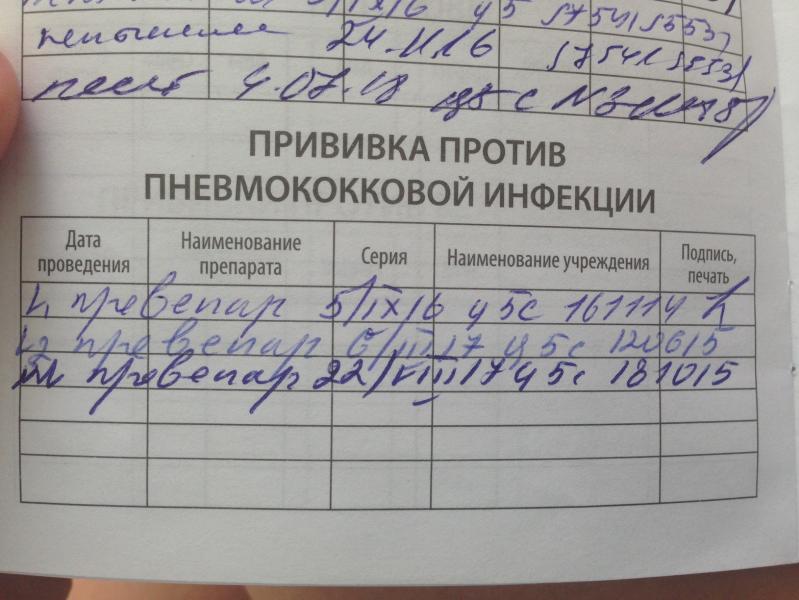 5/IX/16 175415553
24.11.16 175415553
4.07.18
ПРИВИВКА ПРОТИВ
ПНЕВМОКОККОВОЙ ИНФЕКЦИИ
Дата проведения Наименование препарата Серия Наименование учреждения Подпись, печать
превенар 5/IX/16 у 5с 161114
превенар 6/III/17 у 5с 120615
превенар 22/VIII 17 у 5с 181015